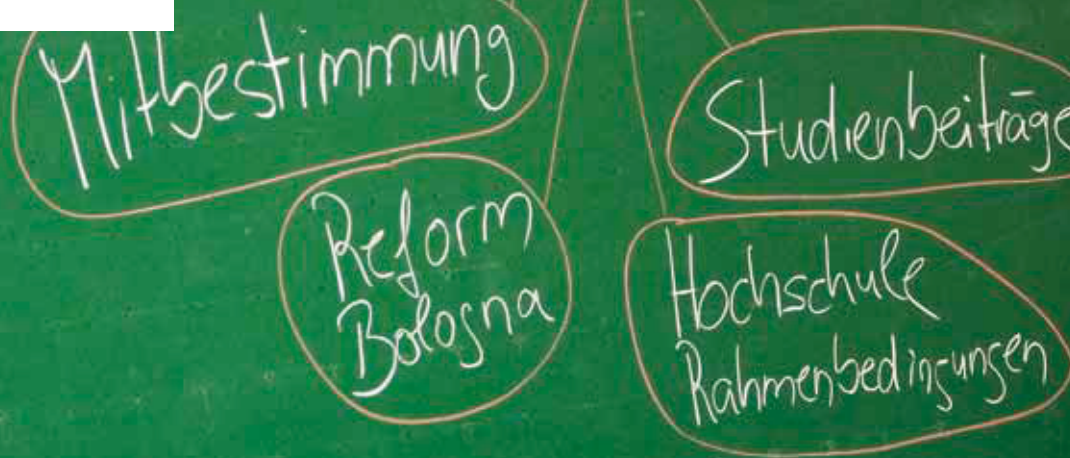 Mitbestimmung
Studienbeiträge
Reform
Bologna
Hochschule
Rahmenbedingungen